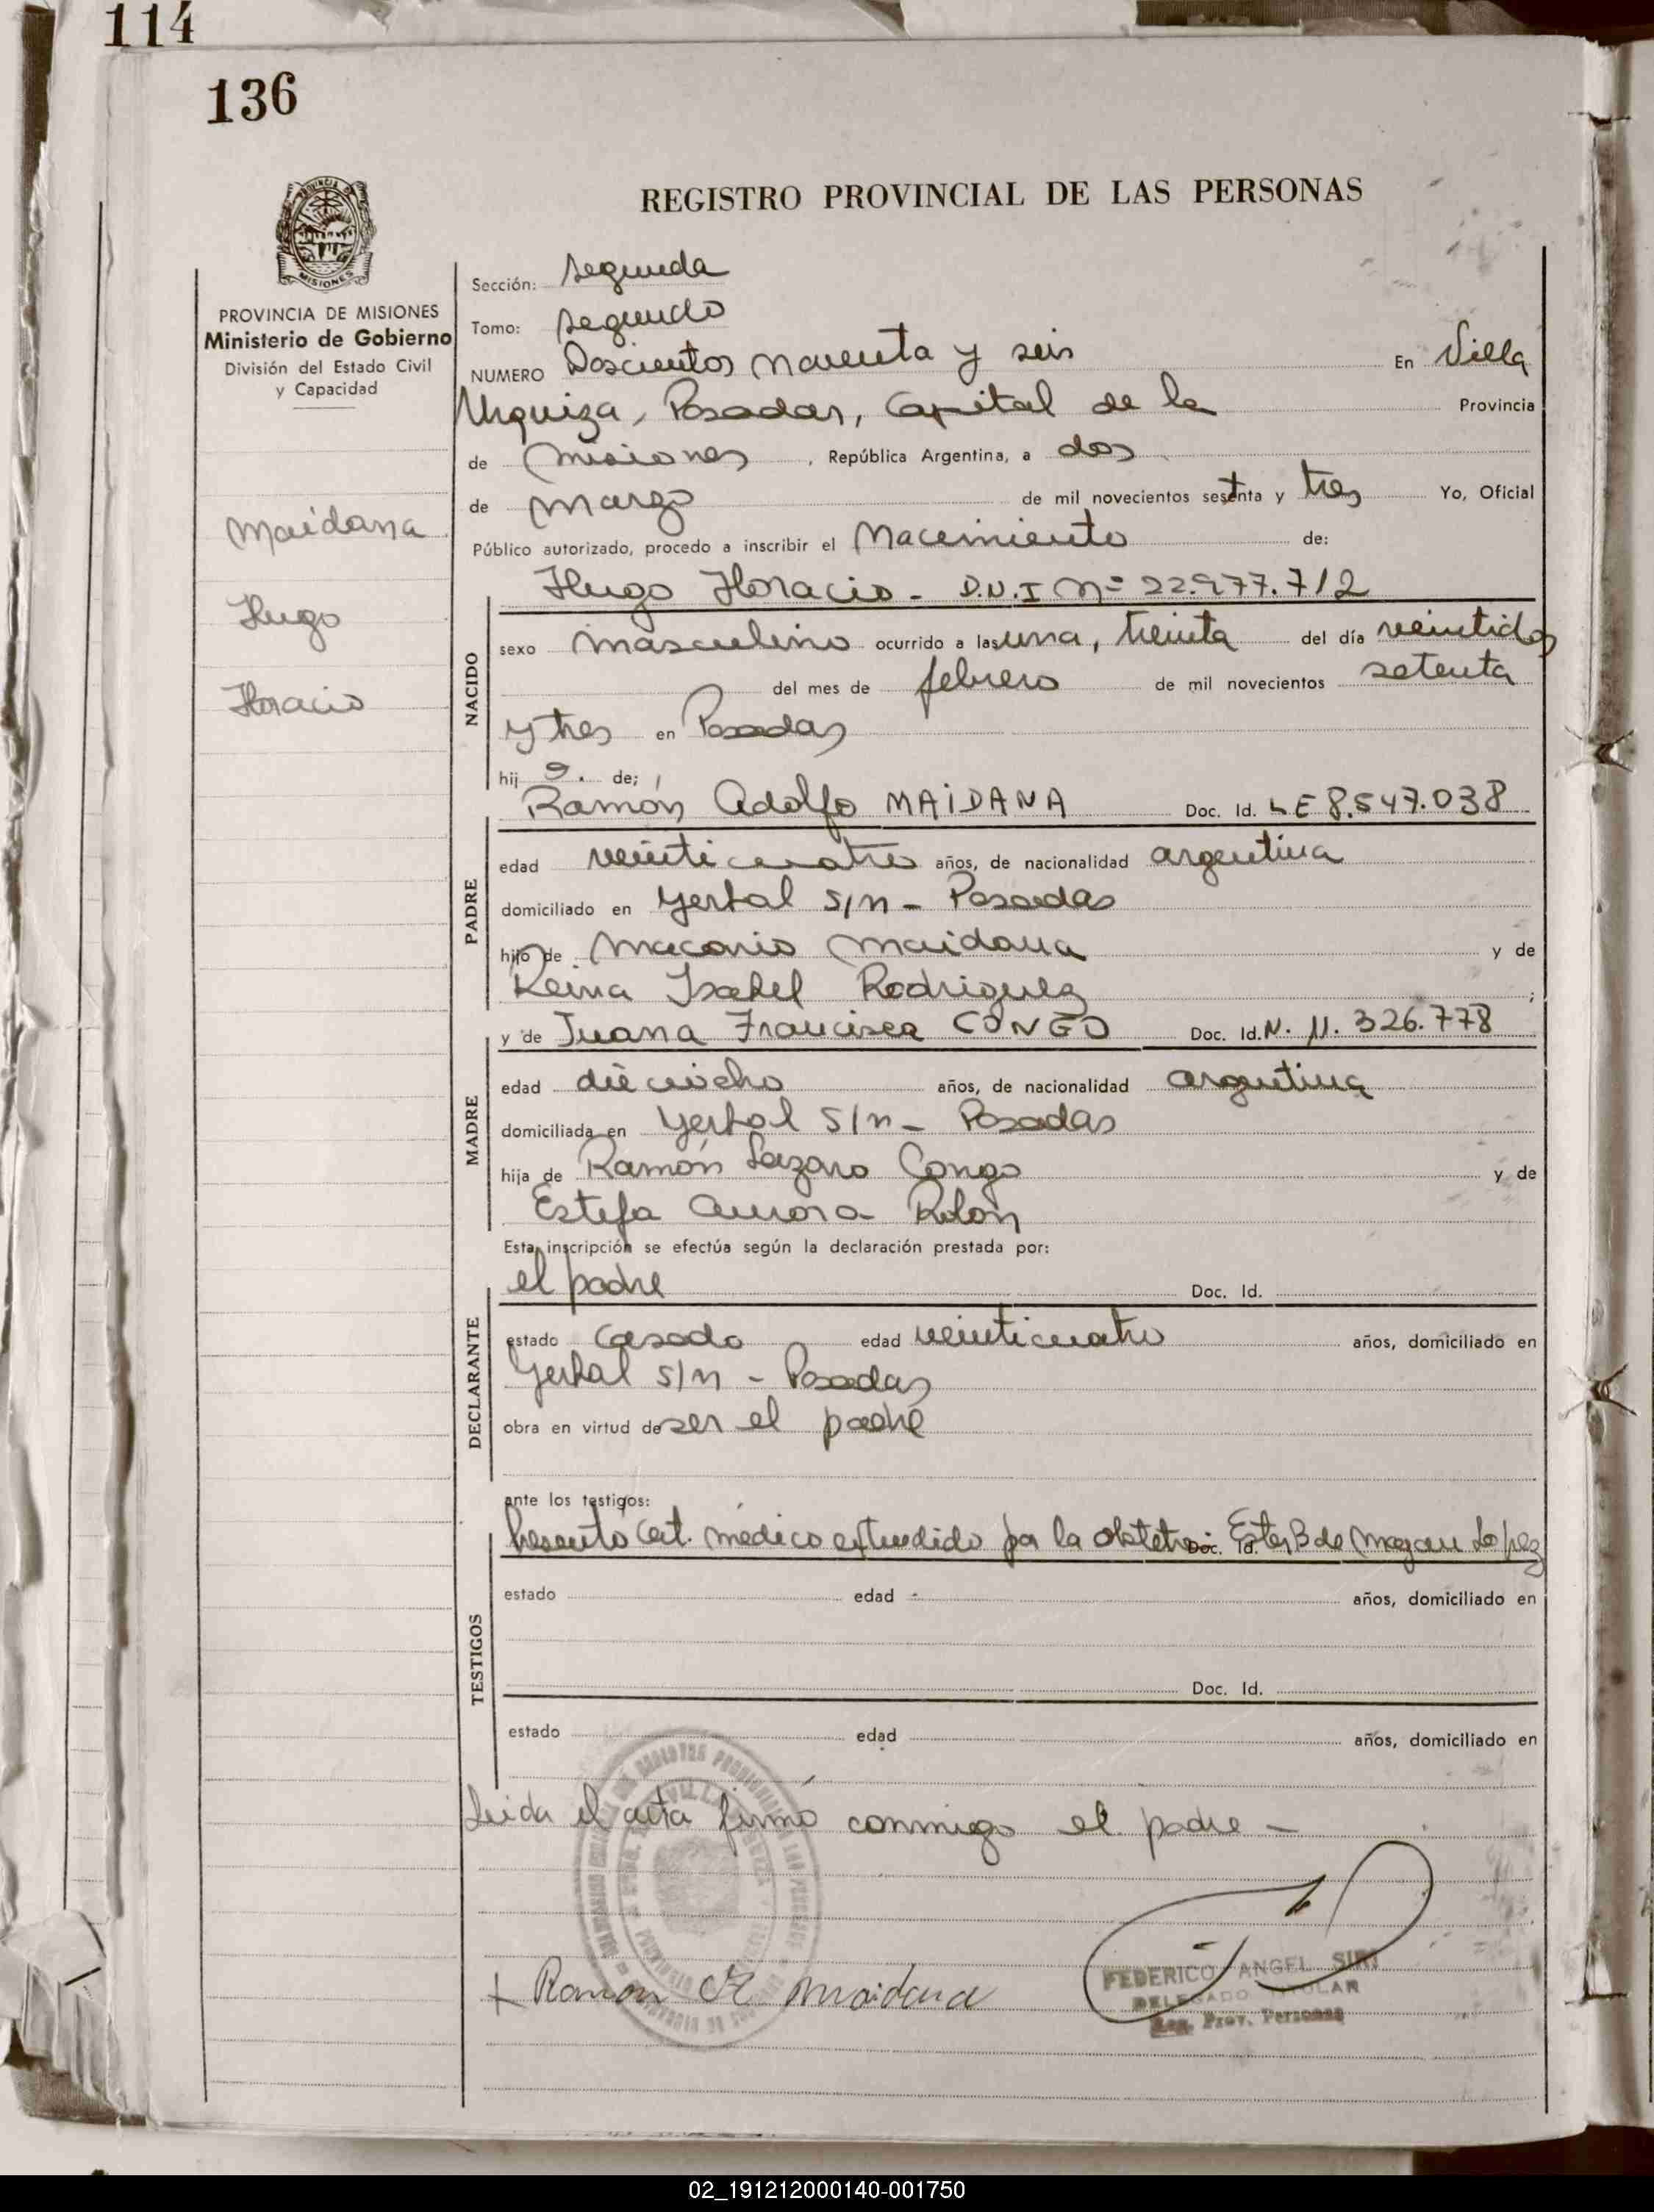 114
136
REGISTRO PROVINCIAL DE LAS PERSONAS
MISIONES
PROVINCIA DE MISIONES
Ministerio de Gobierno
División del Estado Civil
y Capacidad
Maidana
Hugo
Horacio
Sección: segunda
Tomo: segundo
NUMERO Doscientos noventa y seis En Villa
Urquiza, Posadas, Capital de la Provincia
de misiones, República Argentina, a dos
de marzo de mil novecientos setenta y tres Yo, Oficial
Público autorizado, procedo a inscribir el Nacimiento de:
Hugo Horacio - D.N.I Nº 22.977.712
NACIDO
sexo masculino ocurrido a las una, treinta del día veintidos
del mes de febrero de mil novecientos setenta
y tres en Posadas
hijo. de;
Ramón Adolfo MAIDANA Doc. Id. LE 8.547.038
PADRE
edad veinticuatro años, de nacionalidad argentina
domiciliado en Yerbal s/n - Posadas
hijo de Macario Maidana y de
Reina Isabel Rodriguez;
y de Juana Francisca CONGO Doc. Id. N. 11.326.778
MADRE
edad dieciocho años, de nacionalidad argentina
domiciliada en Yerbal S/n - Posadas
hija de Ramón Lazaro Congo y de
Estefa Aurora Rolón
Esta inscripción se efectúa según la declaración prestada por:
el padre Doc. Id.
DECLARANTE
estado Casado edad veinticuatro años, domiciliado en
Yerbal s/n - Posadas
obra en virtud de ser el padre
ante los testigos:
Presentó Cert. médico extendido por la Doc. Id. Ester B de Lopez
TESTIGOS
estado edad años, domiciliado en
Doc. Id.
estado edad años, domiciliado en
Leida el acta firmó conmigo el padre -
Ramon A Maidana
FEDERICO ANGEL SIRI
DELEGADO TITULAR
Reg. Prov. Personas
02_191212000140-001750